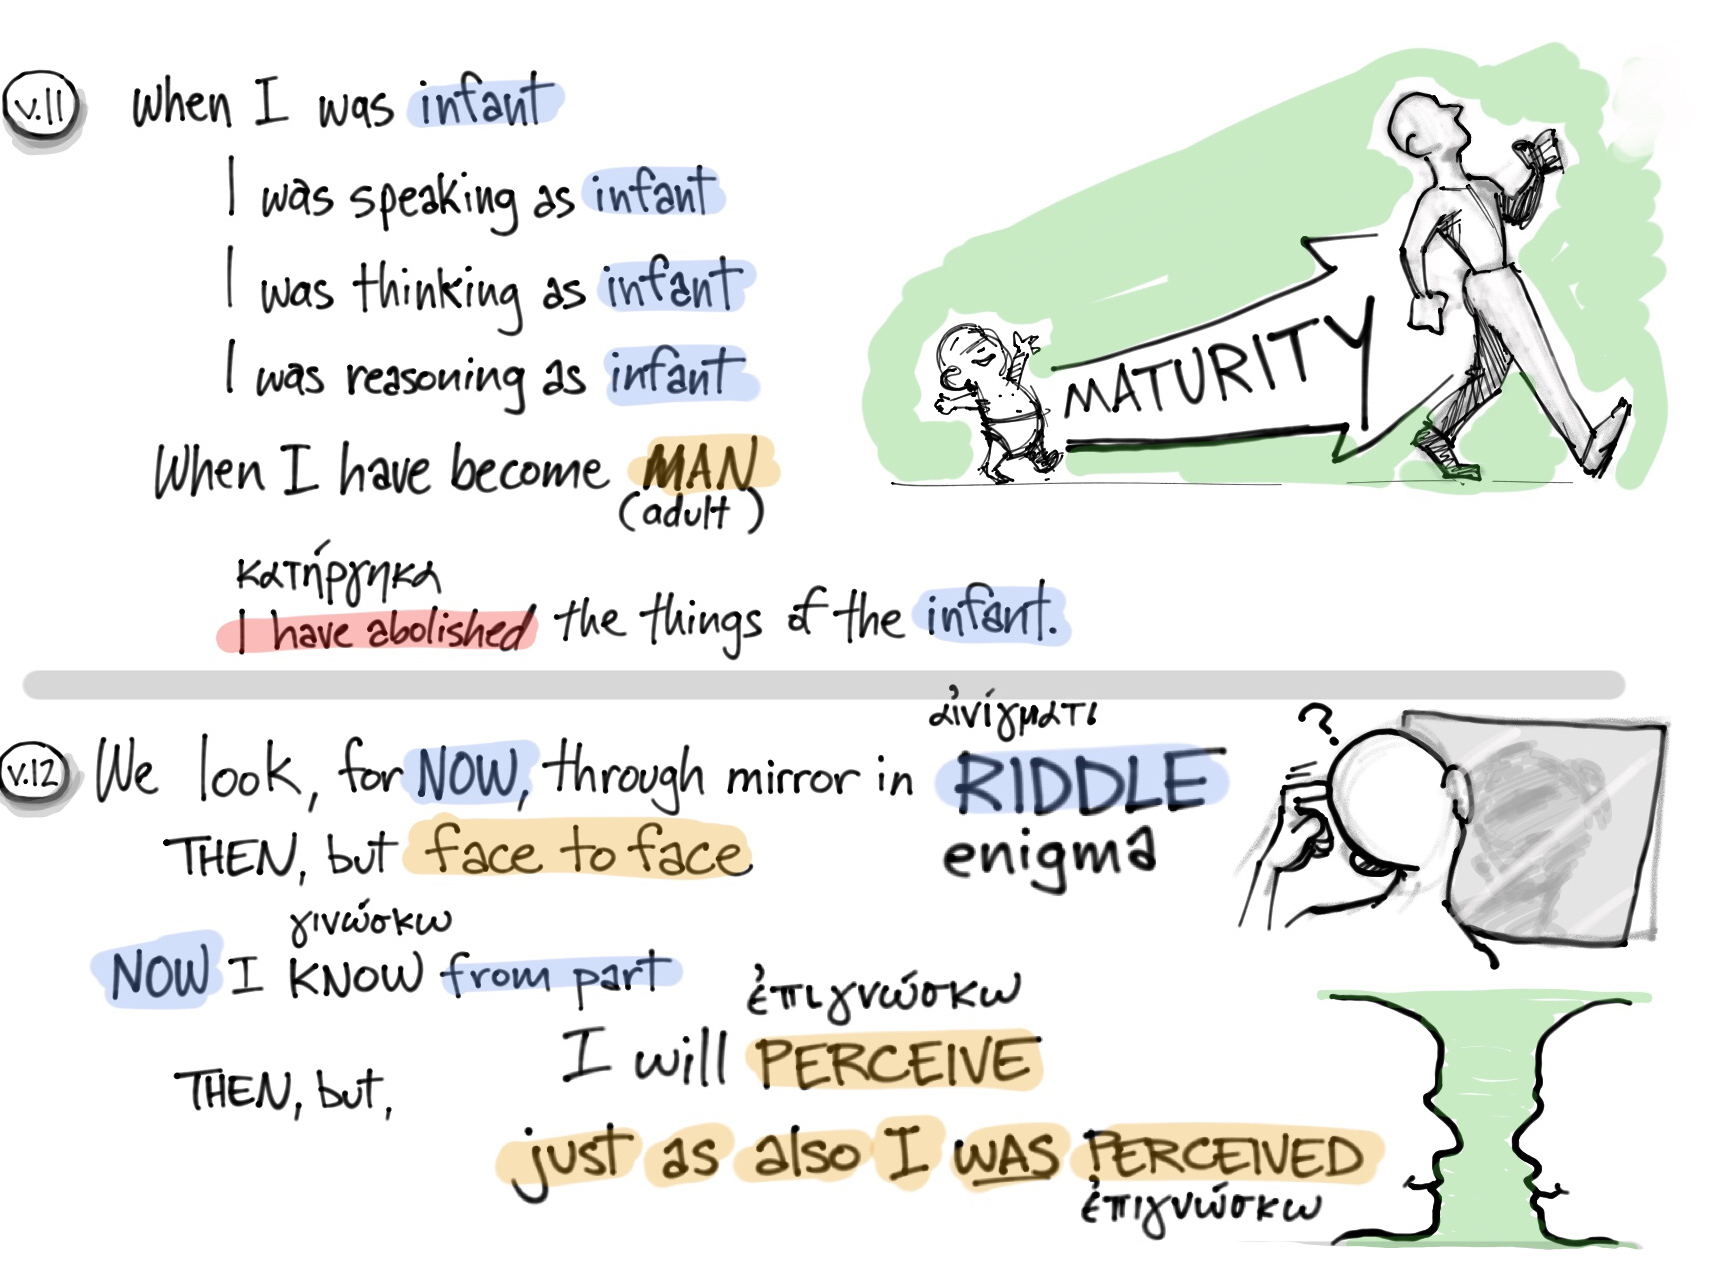 v.11 When I was infant
I was speaking as infant
I was thinking as infant
I was reasoning as infant
When I have become MAN
(adult)
κατήργηκα
I have abolished the things of the infant.
MATURITY
αἰνίγματι
v.12 We look, for NOW, through mirror in RIDDLE
enigma
THEN, but face to face
γινώσκω
NOW I KNOW from part
ἐπιγνώσκω
THEN, but, I will PERCEIVE
just as also I WAS PERCEIVED
ἐπιγνώσκω
?